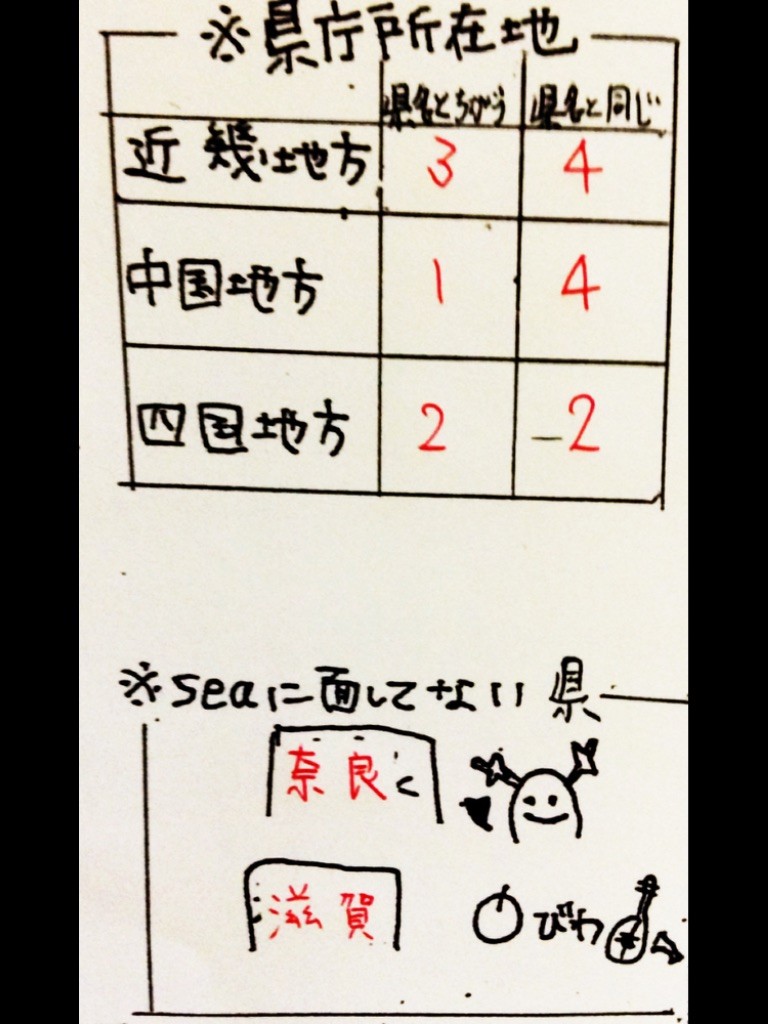 ※県庁所在地
県名とちがう 県名と同じ
近畿地方 3 4
中国地方 1 4
四国地方 2 2
※seaに面してない県
奈良と
滋賀
びわ